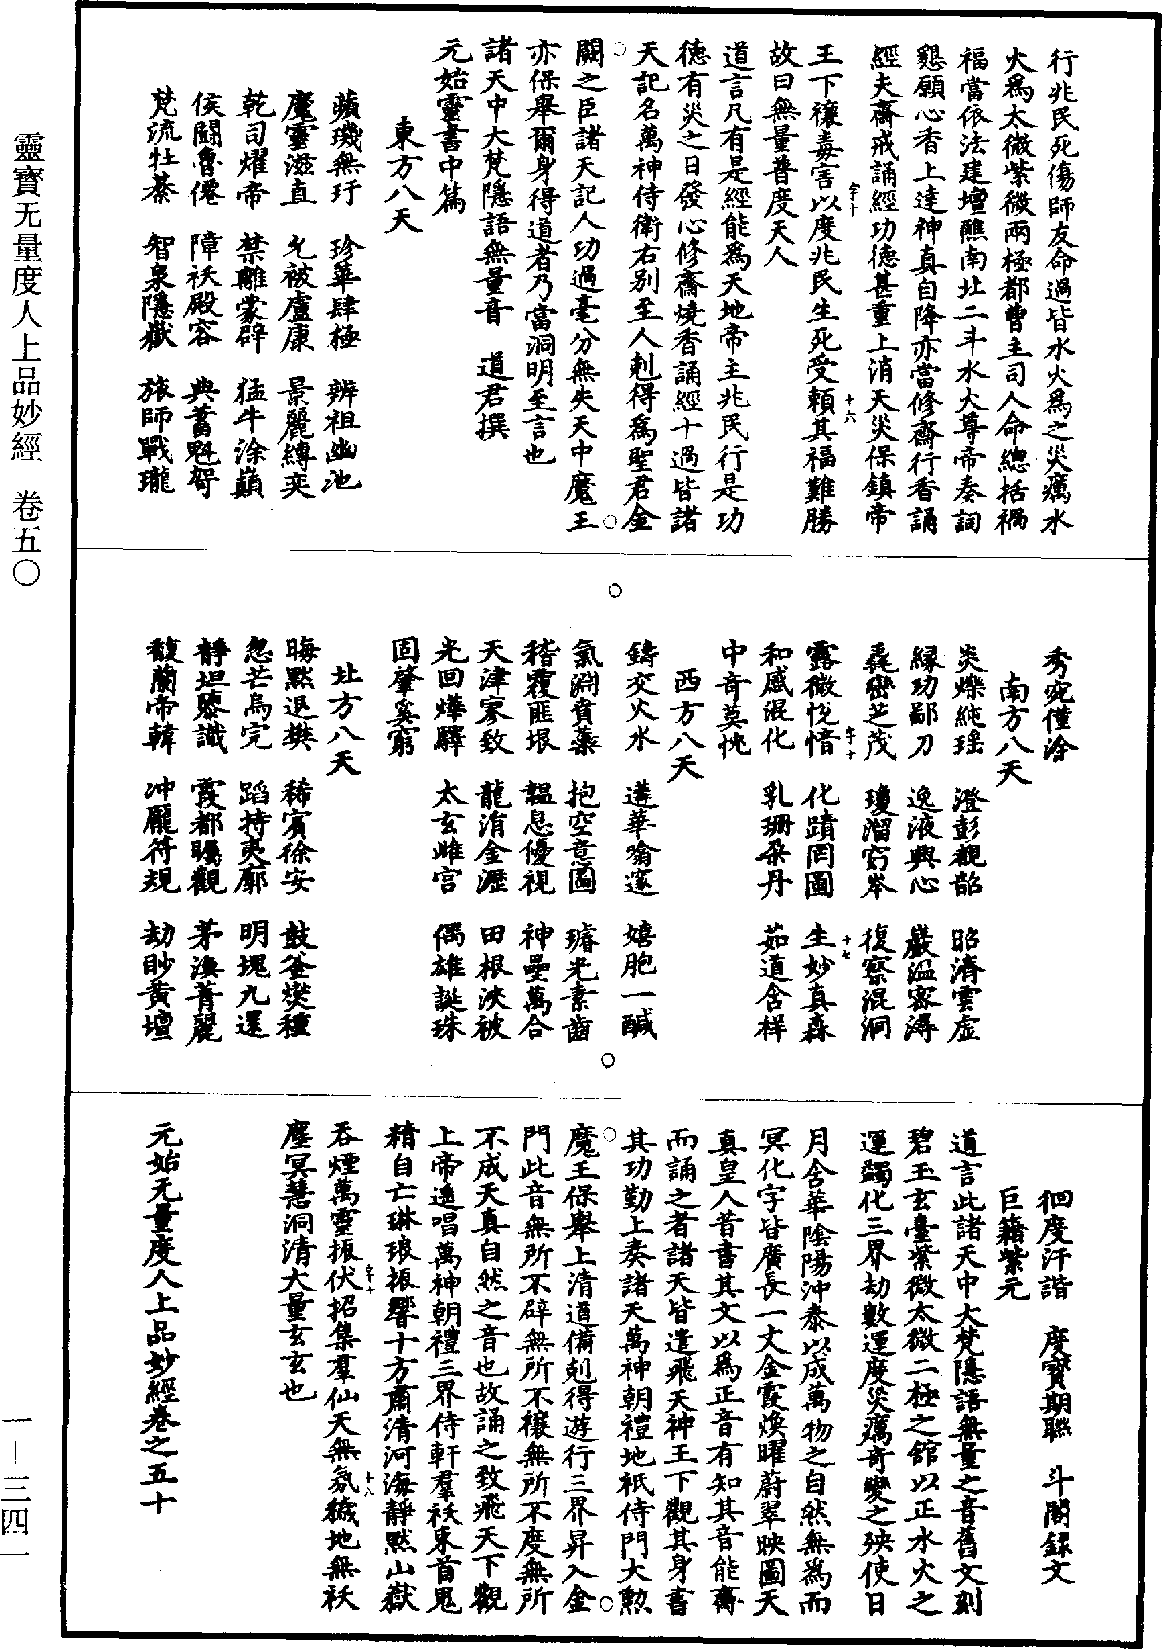 行兆民死傷師友命過皆水火為之災癘水
火為太微紫微兩極都曹主司人命總括禍
福當依法建壇醮南北二斗水火尊帝奏詞
懇願心香上達神真自降亦當修齋行香誦
經夫齋戒誦經功德甚重上消天災保鎮帝
王下禳毒害以度兆民生死受賴其福難勝
故曰無量普度天人
道言凡有是經能為天地帝主兆民行是功
德有災之日發心修齋燒香誦經十過皆諸
天記名萬神侍衛右別至人剋得為聖君金
闕之臣諸天記人功過毫分無失天中魔王
亦保舉爾身得道者乃當洞明至言也
諸天中大梵隱語無量音　道君撰
元始靈書中篇
東方八天
蘋璣無玗　珍華肆極　辨祖幽池
魔靈滋直　允被盧康　景麗縛奕
乾司燿帝　禁雕蒙辟　猛牛涂巔
侯闘魯僊　障祅殿容　典蓄魁智
梵流牡綦　智泉隱嶽　旅師戰瓏
秀宛僅洽
南方八天
炎爍純瑤　澄彭觀韶　昭濟雲虛
緣功鄙刀　逸液興心　嚴溫密潯
毳巒芝茂　瓊溜穷岑　復察混洞
露微悅愔　化蹟罔圖　生妙真森
和感混化　乳珊朶丹　茹道含样
中奇莫恍
西方八天
鑄交火水　蓮華喻邃　嬉胞一醎
氣淵貧藥　抱空意圖　璿光素齒
稽覆匪垠　韞息優視　神壘萬合
天津寥致　龍洧金瀝　田根泱被
光回燁驛　太玄雌宮　偶雄誕珠
固肇奚窮
北方八天
晦黙退樊　稀賓徐安　鼓釜㷼種
忽芒烏完　蹈持夷廓　明塊九還
靜坦黎識　霞都矚觀　茅渙菁麗
馥蘭帝韓　冲龎符規　劫眇黃壇
徊度汗諧　度寶期聮　斗閣録文
巨籍紫元
道言此諸天中大梵隱語無量之音舊文刻
碧玉玄臺紫微太微二極之舘以正水火之
運蠲化三界劫數運度災癘奇變之殃使日
月含華陰陽沖泰以成萬物之自然無為而
冥化字皆廣長一丈金霞煥曜蔚翠映圖天
真皇人昔書其文以為正音有知其音能齋
而誦之者諸天皆遣飛天神王下觀其身書
其功勤上奏諸天萬神朝禮地祇侍門大勲
魔王保舉上清道備剋得遊行三界昇入金
門此音無所不辟無所不禳無所不度無所
不成天真自然之音也故誦之致飛天下觀
上帝遙唱萬神朝禮三界侍軒羣祅束首鬼
精自亡琳琅振響十方肅清河海靜黙山嶽
吞煙萬靈振伏招集羣仙天無氛穢地無祅
塵冥慧洞清大量玄玄也
元始无量度人上品妙經卷之五十
靈寶无量度人上品妙經　卷五〇
一—三四一